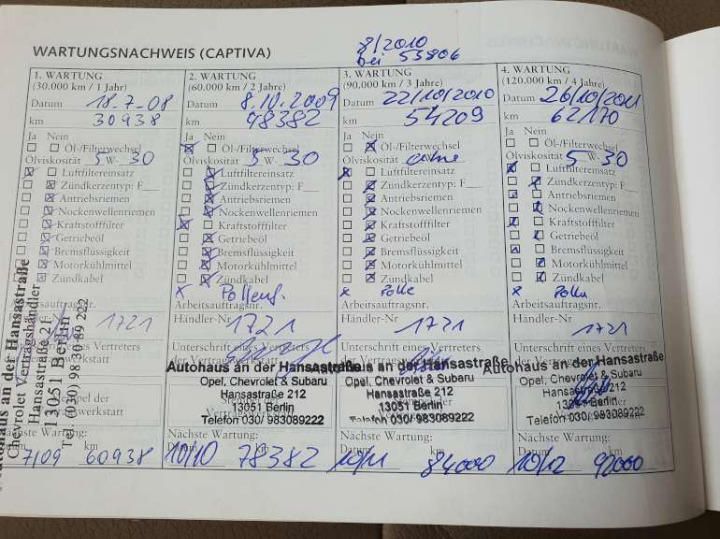 WARTUNGSNACHWEIS (CAPTIVA)
8/2010
bei 53806
1. WARTUNG
(30.000 km / 1 Jahr)
Datum 18.7-08
km 30938
Ja Nein
Öl-/Filterwechsel
Ölviskosität 5 W- 30
Luftfiltereinsatz
Zündkerzentyp: F
Antriebsriemen
Nockenwellenriemen
Kraftstofffilter
Getriebeöl
Bremsflüssigkeit
Motorkühlmittel
Zündkabel
1721
Nächste Wartung:
7/09 60938
Autohaus an der Hansastraße
Chevrolet Vertragshändler
Hansastraße 212
13051 Berlin
Tel. (030) 98 30 89 222
2. WARTUNG
(60.000 km / 2 Jahre)
Datum 8.10.2009
km 48382
Ja Nein
Öl-/Filterwechsel
Ölviskosität 5 W- 30
Luftfiltereinsatz
Zündkerzentyp: F
Antriebsriemen
Nockenwellenriemen
Kraftstofffilter
Getriebeöl
Bremsflüssigkeit
Motorkühlmittel
Zündkabel
x Pollenf.
Arbeitsauftragsnr.
Händler-Nr 1721
Unterschrift eines Vertreters
Autohaus an der Hansastraße
Opel, Chevrolet & Subaru
Hansastraße 212
13051 Berlin
Telefon 030/ 983089222
Nächste Wartung:
10/10 km 78382
3. WARTUNG
(90.000 km / 3 Jahre)
Datum 22/10/2010
km 54209
Ja Nein
Öl-/Filterwechsel
Ölviskosität ohne
Luftfiltereinsatz
Zündkerzentyp: F
Antriebsriemen
Nockenwellenriemen
Kraftstofffilter
Getriebeöl
Bremsflüssigkeit
Motorkühlmittel
Zündkabel
x Polle
Arbeitsauftragsnr.
Händler-Nr 1721
Unterschrift eines Vertreters
an der Hansastraße
Opel, Chevrolet & Subaru
Hansastraße 212
13051 Berlin
Telefon 030/ 983089222
Nächste Wartung:
10/11 km 84000
4. WARTUNG
(120.000 km / 4 Jahre)
Datum 26/10/2011
km 62170
Ja Nein
Öl-/Filterwechsel
Ölviskosität 5 W- 30
Luftfiltereinsatz
Zündkerzentyp: F
Antriebsriemen
Nockenwellenriemen
Kraftstofffilter
Getriebeöl
Bremsflüssigkeit
Motorkühlmittel
Zündkabel
x Polle
Arbeitsauftragsnr.
Händler-Nr 1721
Unterschrift eines Vertreters
Autohaus an der Hansastraße
Opel, Chevrolet & Subaru
Hansastraße 212
13051 Berlin
Telefon 030/ 983089222
Nächste Wartung:
10/12 km 92000